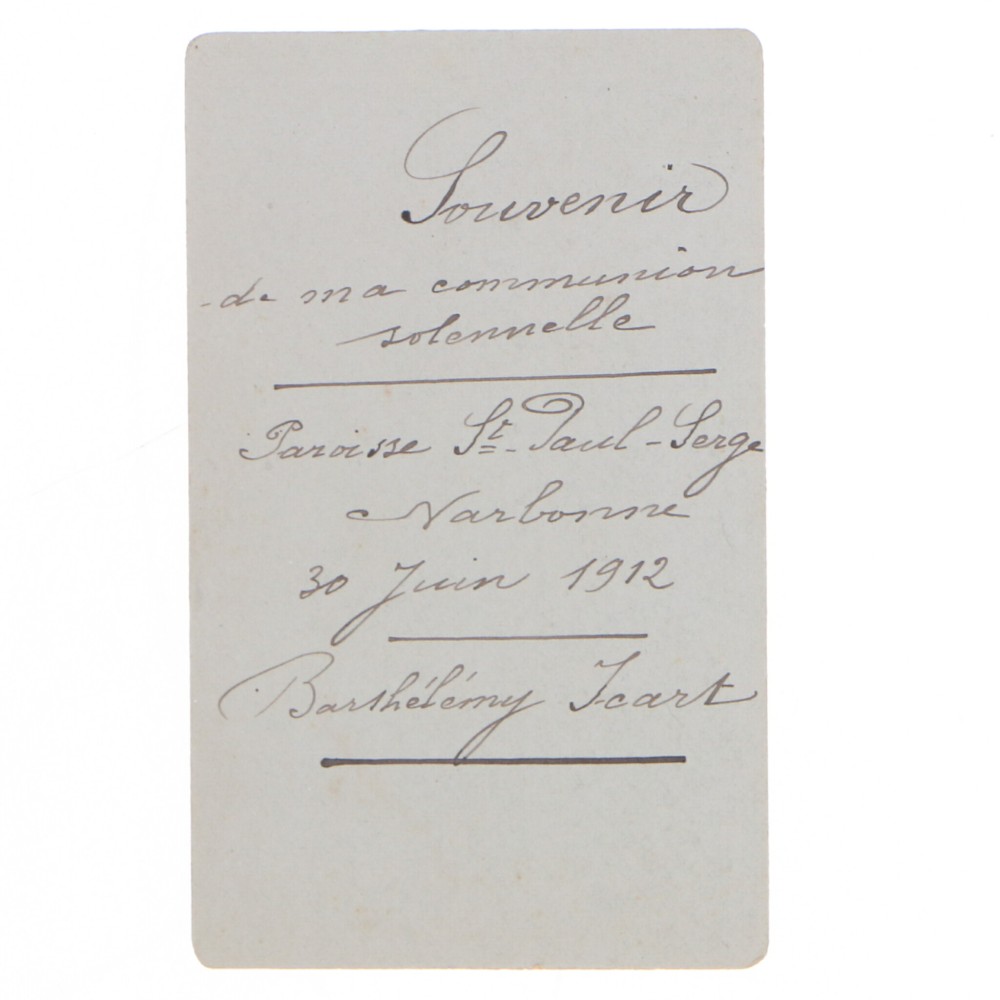 Souvenir
de ma communion
solennelle
Paroisse St-Paul-Serge
Narbonne
30 Juin 1912
Barthélémy Icart